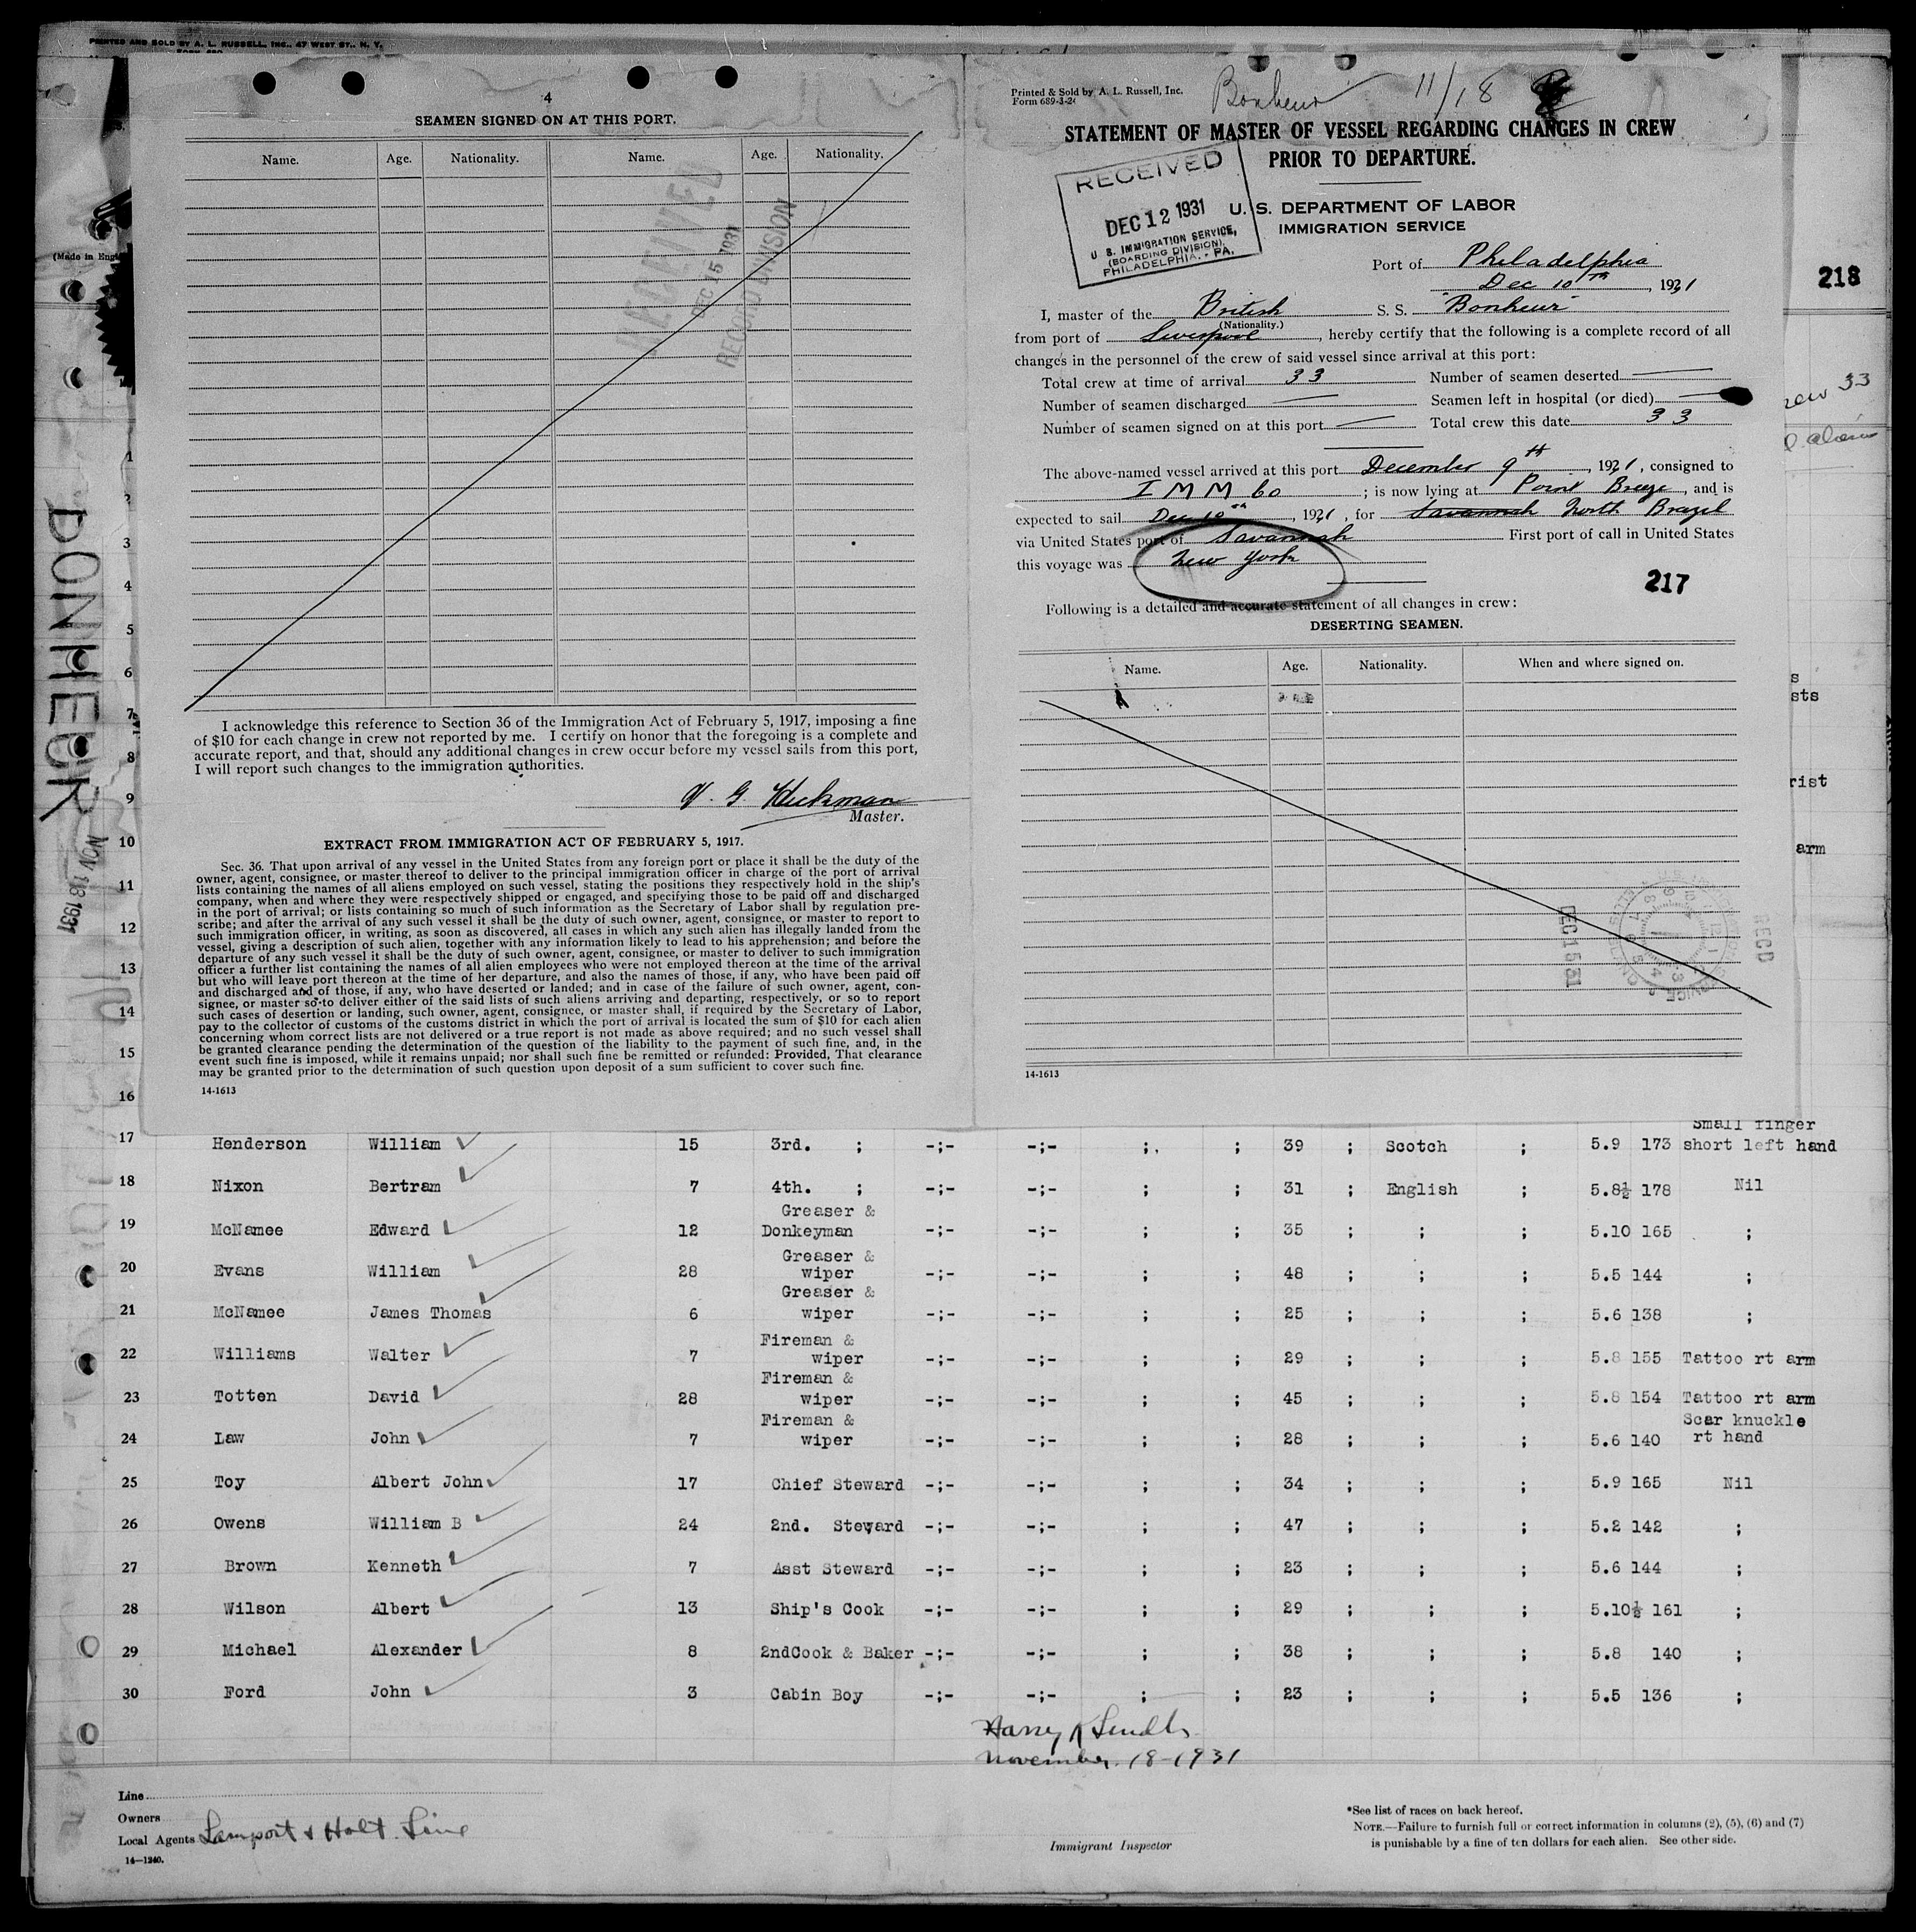 PRINTED AND SOLD BY A. L. RUSSELL, INC., 47 WEST ST., N. Y.
(Made in Eng
BONHEUR
NOV 18 1931
4
SEAMEN SIGNED ON AT THIS PORT.
Name. Age. Nationality. Name. Age. Nationality.
RECEIVED
DEC 15 1931
RECORD DIVISION
I acknowledge this reference to Section 36 of the Immigration Act of February 5, 1917, imposing a fine
of $10 for each change in crew not reported by me. I certify on honor that the foregoing is a complete and
accurate report, and that, should any additional changes in crew occur before my vessel sails from this port,
I will report such changes to the immigration authorities.
Master.
EXTRACT FROM IMMIGRATION ACT OF FEBRUARY 5, 1917.
Sec. 36. That upon arrival of any vessel in the United States from any foreign port or place it shall be the duty of the
owner, agent, consignee, or master thereof to deliver to the principal immigration officer in charge of the port of arrival
lists containing the names of all aliens employed on such vessel, stating the positions they respectively hold in the ship's
company, when and where they were respectively shipped or engaged, and specifying those to be paid off and discharged
in the port of arrival; or lists containing so much of such information as the Secretary of Labor shall by regulation pre-
scribe; and after the arrival of any such vessel it shall be the duty of such owner, agent, consignee, or master to report to
such immigration officer, in writing, as soon as discovered, all cases in which any such alien has illegally landed from the
vessel, giving a description of such alien, together with any information likely to lead to his apprehension; and before the
departure of any such vessel it shall be the duty of such owner, agent, consignee, or master to deliver to such immigration
officer a further list containing the names of all alien employees who were not employed thereon at the time of the arrival
but who will leave port thereon at the time of her departure, and also the names of those, if any, who have been paid off
and discharged and of those, if any, who have deserted or landed; and in case of the failure of such owner, agent, con-
signee, or master so to deliver either of the said lists of such aliens arriving and departing, respectively, or so to report
such cases of desertion or landing, such owner, agent, consignee, or master shall, if required by the Secretary of Labor,
pay to the collector of customs of the customs district in which the port of arrival is located the sum of $10 for each alien
concerning whom correct lists are not delivered or a true report is not made as above required; and no such vessel shall
be granted clearance pending the determination of the question of the liability to the payment of such fine, and, in the
event such fine is imposed, while it remains unpaid; nor shall such fine be remitted or refunded: Provided, That clearance
may be granted prior to the determination of such question upon deposit of a sum sufficient to cover such fine.
14-1613
Printed & Sold by A. L. Russell, Inc.
Form 689-3-2
Bonheur 11/18
STATEMENT OF MASTER OF VESSEL REGARDING CHANGES IN CREW
PRIOR TO DEPARTURE.
RECEIVED
DEC 12 1931
U. S. IMMIGRATION SERVICE,
(BOARDING DIVISION),
PHILADELPHIA, - PA.
U. S. DEPARTMENT OF LABOR
IMMIGRATION SERVICE
Port of Philadelphia
Dec 10th, 1931
I, master of the British S. S. "Bonheur"
(Nationality.)
from port of Liverpool, hereby certify that the following is a complete record of all
changes in the personnel of the crew of said vessel since arrival at this port:
Total crew at time of arrival 33 Number of seamen deserted
Number of seamen discharged Seamen left in hospital (or died)
Number of seamen signed on at this port Total crew this date 33
The above-named vessel arrived at this port December 9th, 1931, consigned to
I M M Co ; is now lying at Point Breeze, and is
expected to sail Dec 10th, 1931, for Savannah North Brazil
via United States port of Savannah First port of call in United States
this voyage was New York
217
Following is a detailed and accurate statement of all changes in crew:
DESERTING SEAMEN.
Name. Age. Nationality. When and where signed on.
DEC 15 31
REC'D
14-1613
218
33
sts
rist
arm
1
2
3
4
5
6
7
8
9
10
11
12
13
14
15
16
Small finger
17 Henderson William 15 3rd. ; -;- -;- ; ; 39 ; Scotch ; 5.9 173 short left hand
18 Nixon Bertram 7 4th. ; -;- -;- ; ; 31 ; English ; 5.8½ 178 Nil
Greaser &
19 McNamee Edward 12 Donkeyman -;- -;- ; ; 35 ; ; ; 5.10 165 ;
Greaser &
20 Evans William 28 wiper -;- -;- ; ; 48 ; ; ; 5.5 144 ;
Greaser &
21 McNamee James Thomas 6 wiper -;- -;- ; ; 25 ; ; ; 5.6 138 ;
Fireman &
22 Williams Walter 7 wiper -;- -;- ; ; 29 ; ; ; 5.8 155 Tattoo rt arm
Fireman &
23 Totten David 28 wiper -;- -;- ; ; 45 ; ; ; 5.8 154 Tattoo rt arm
Fireman & Scar knuckle
24 Law John 7 wiper -;- -;- ; ; 28 ; ; ; 5.6 140 rt hand
25 Toy Albert John 17 Chief Steward -;- -;- ; ; 34 ; ; ; 5.9 165 Nil
26 Owens William B 24 2nd. Steward -;- -;- ; ; 47 ; ; ; 5.2 142 ;
27 Brown Kenneth 7 Asst Steward -;- -;- ; ; 23 ; ; ; 5.6 144 ;
28 Wilson Albert 13 Ship's Cook -;- -;- ; ; 29 ; ; ; 5.10½ 161 ;
29 Michael Alexander 8 2ndCook & Baker -;- -;- ; ; 38 ; ; ; 5.8 140 ;
30 Ford John 3 Cabin Boy -;- -;- ; ; 23 ; ; ; 5.5 136 ;
Harry
November 18-1931
Line
Owners
Local Agents Lamport & Holt Line
14—1240.
Immigrant Inspector
*See list of races on back hereof.
NOTE.—Failure to furnish full or correct information in columns (2), (5), (6) and (7)
is punishable by a fine of ten dollars for each alien. See other side.